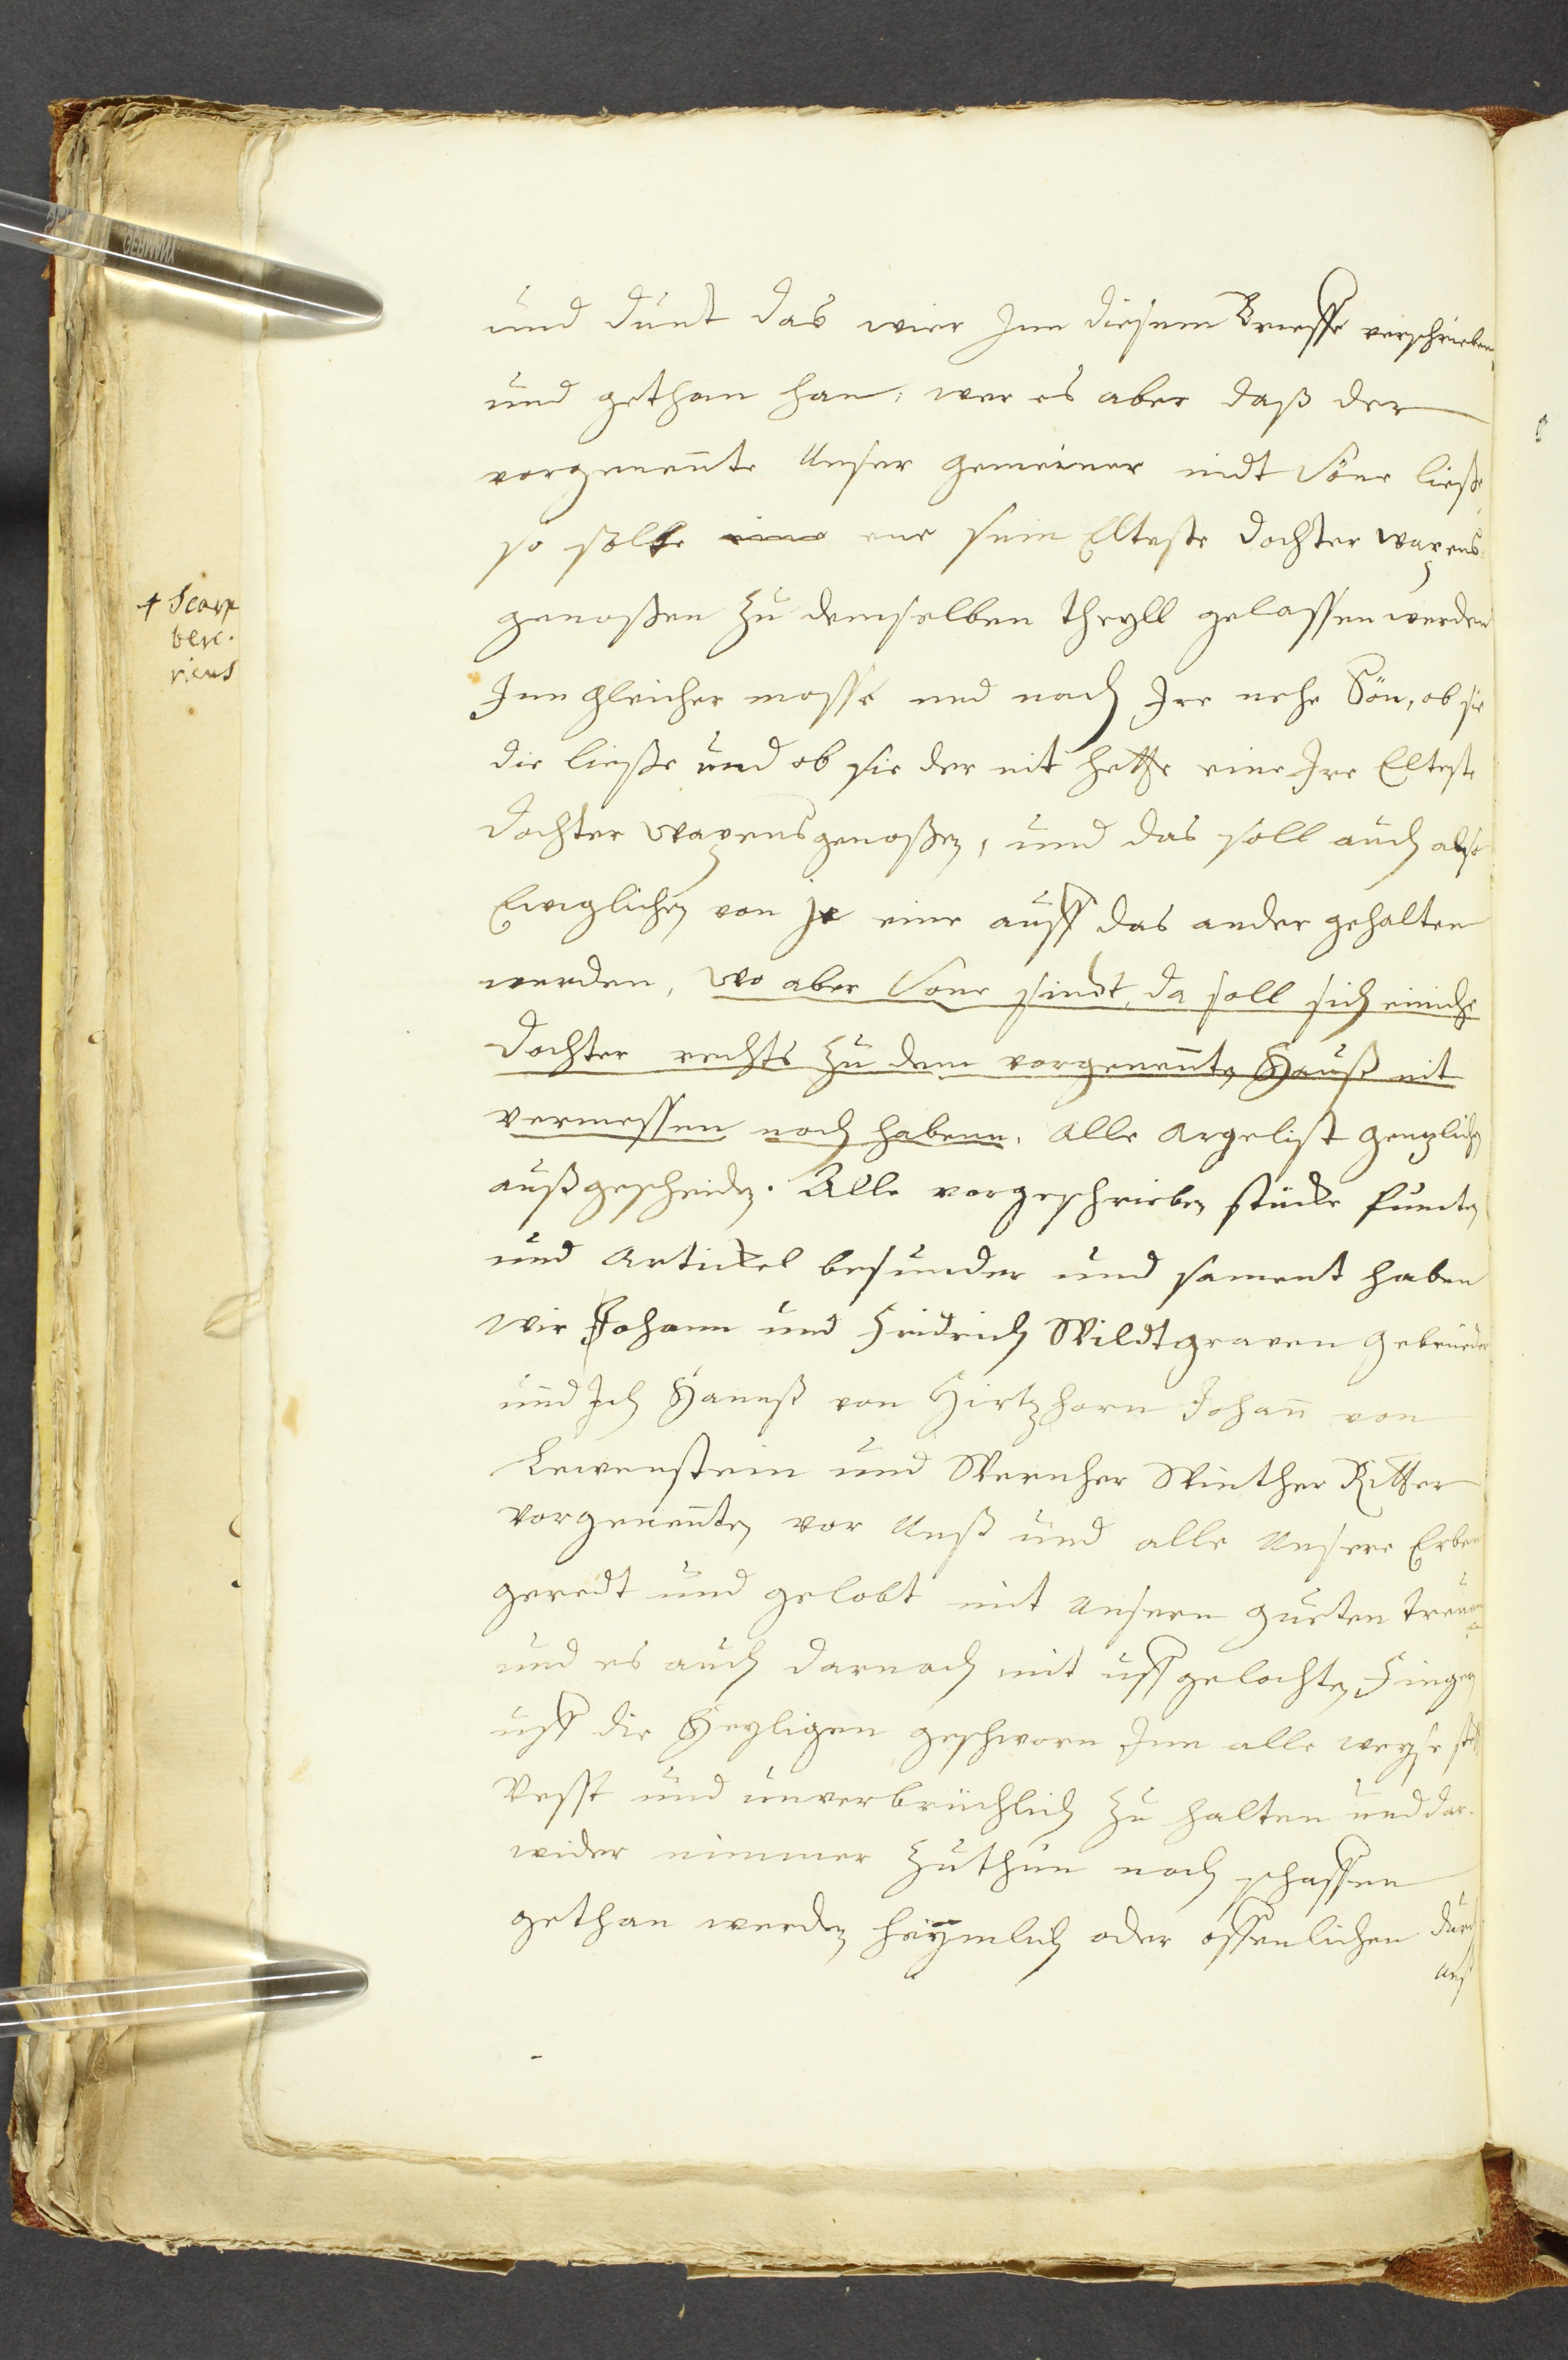 und dunt das wier Inn diesem Brieffe verschrieben
und gethan han, wer es aber daß der
vorgenennte Unser gemeiner nidt Söne ließe,
so solte ene sein Elteste dochter wapens
genoßen zu demselben theyll gelassen werden
Inn gleicher mosse und nach Ire nehe Sön, ob sie
die ließe und ob sie der nit hette eine Ire Elteste
dochter wapensgenoßen, und das soll auch also
Ewiglichen von je eine auff das ander gehalten
werden, wo aber Sone sindt, da soll sich einiche
dochter rechts zu dem vorgenennten Hauß nit
vermessen noch habenn, Alle Argelist gentzlichen
außgescheiden. Alle vorgeschrieben stücke puncten
und Artickel besunder und sament haben
wir Johann und Fridrich Wildtgraven gebrueder
und Ich Hannß von Hirtzhorn Johann von
Lewenstein und Wernher Winther Ritter
vorgenennten vor Unß und alle Unsere Erben
geredt und gelobt mit Unsern gueten treuen
und es auch darnach mit uffgelachten Fingern
uff die Heyligen geschworn Inn alle weyse stett
Vesst und unverbrüchlich zu halten und dar-
wider nimmer zuthun noch schaffen
gethan werden heymlich oder offenlichen durch
Unß